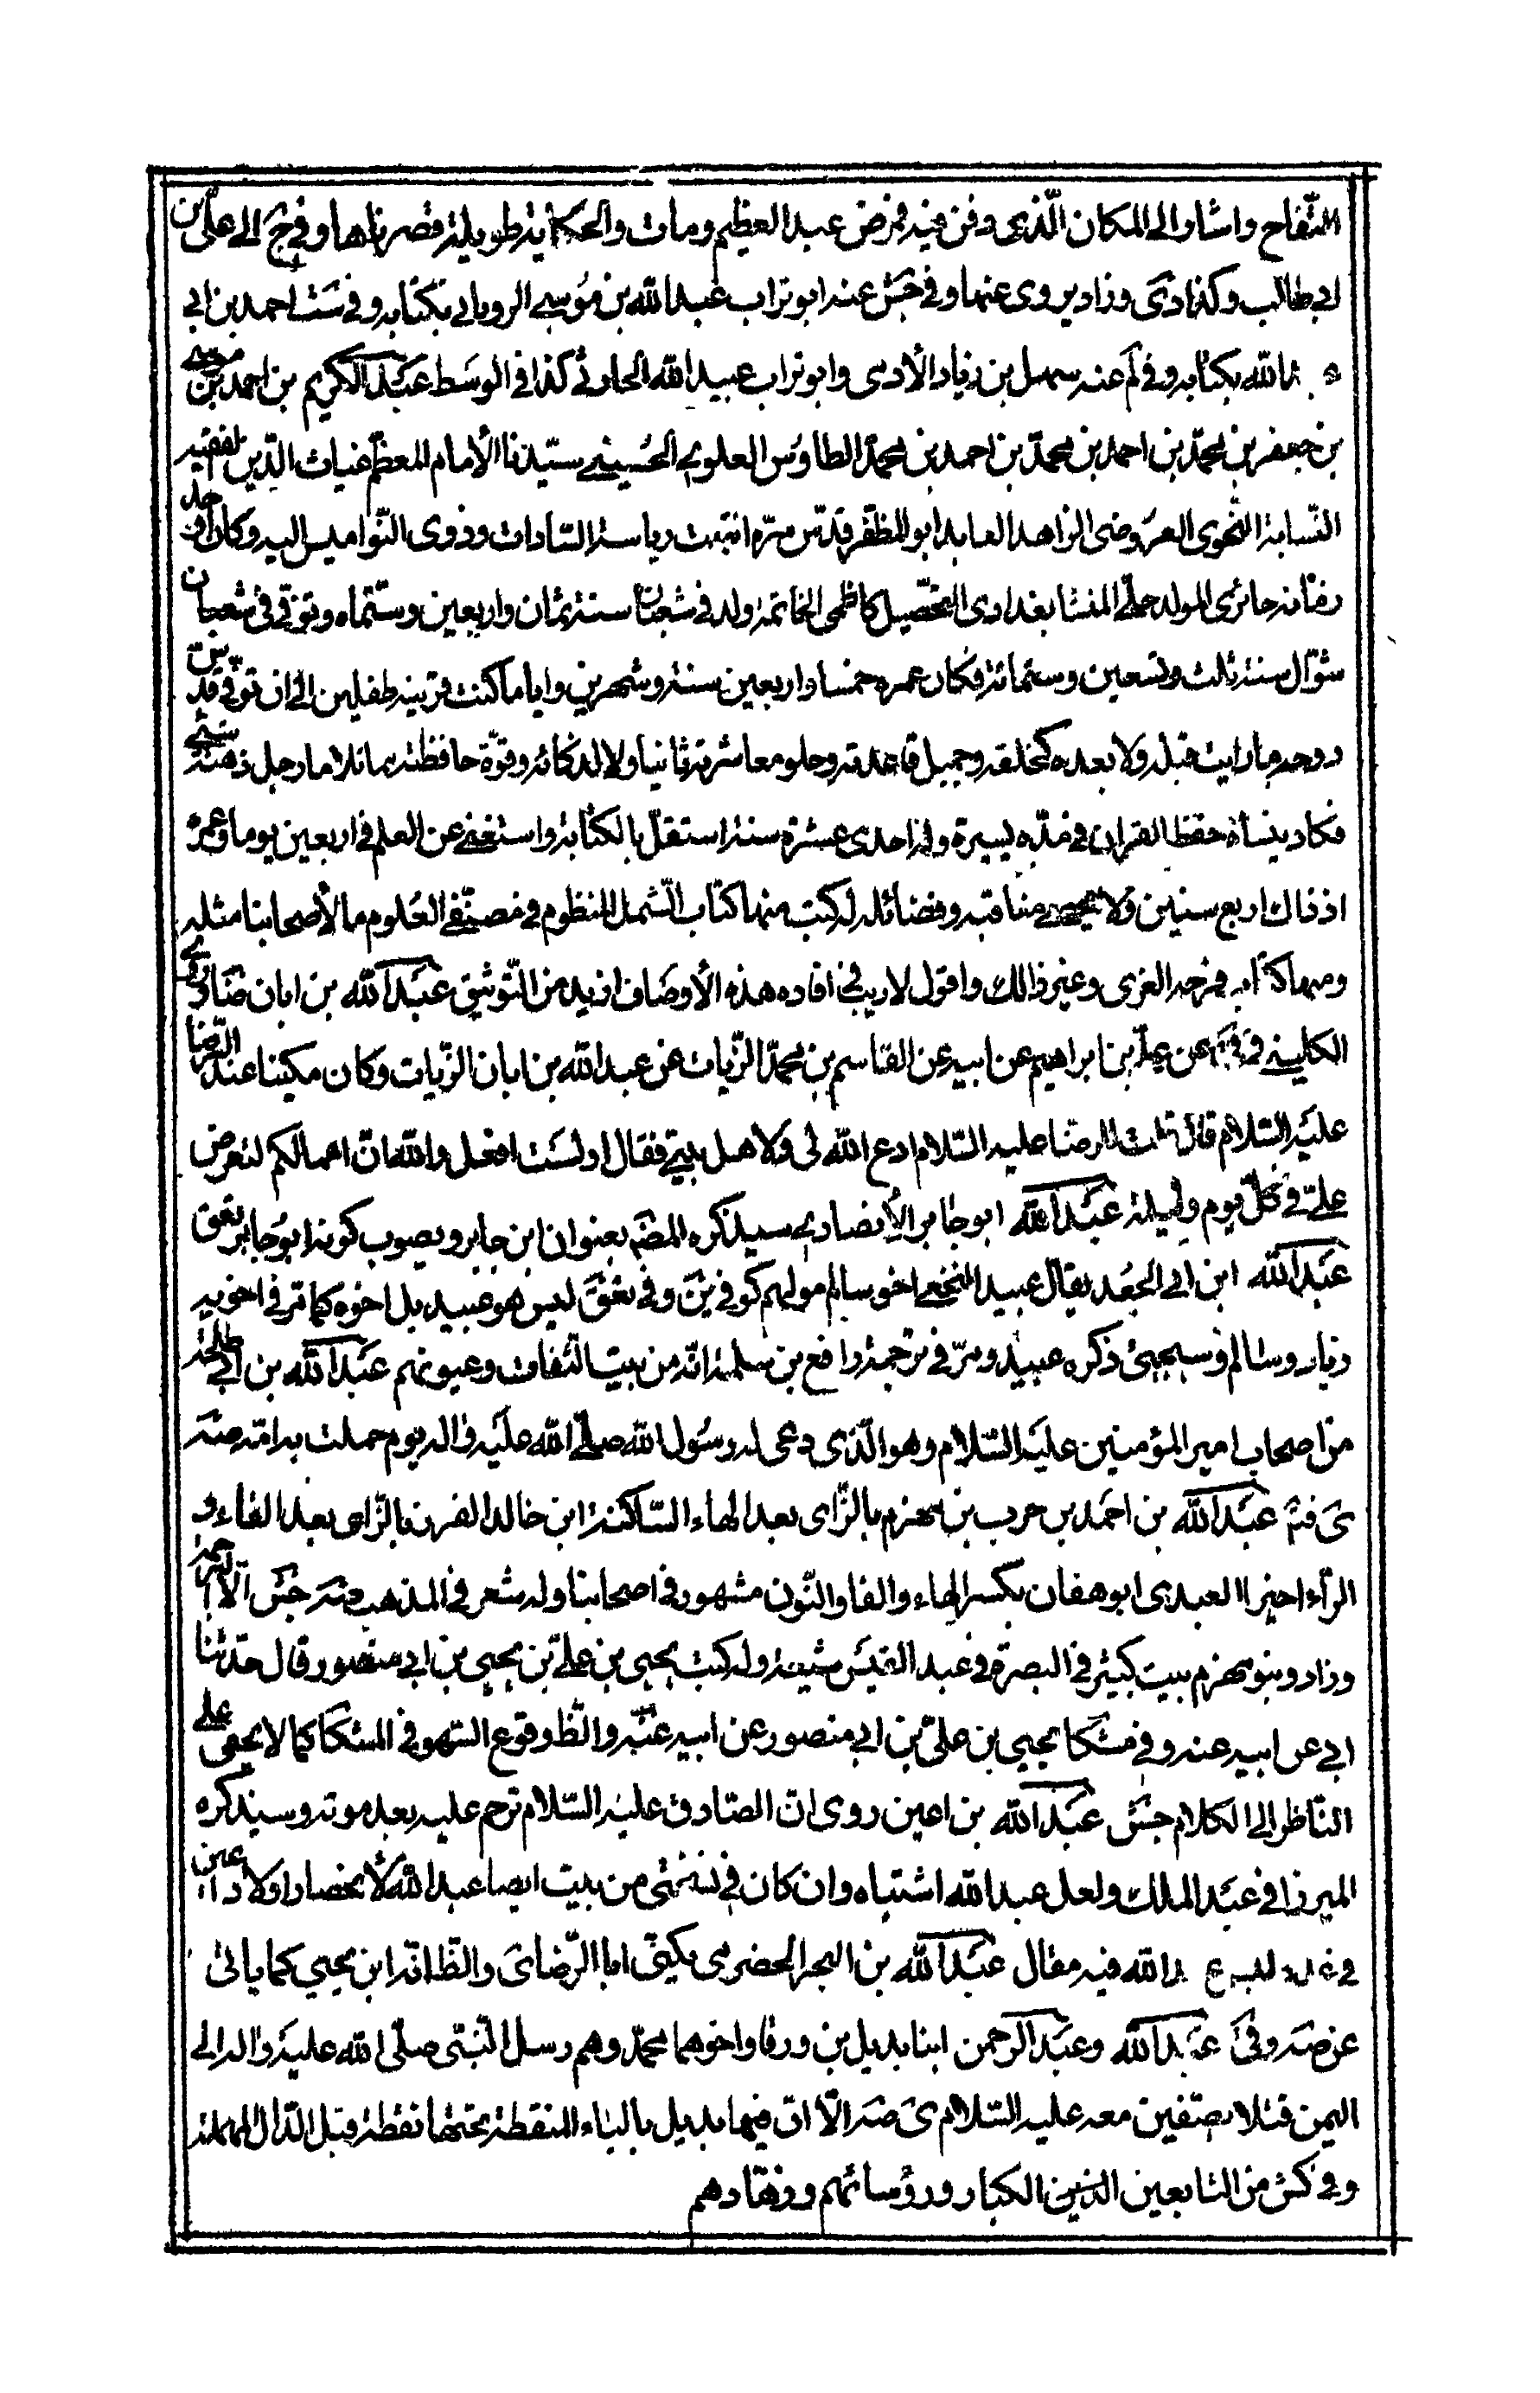 التّفاح واشاوا الى المكان الّذى دفن فيه فمرض عبد العظيم ومات والحكاية طويلة قصرناها وفى جخ الى علىّ بن
ابى طالب وكذا دى وزاد يروى عنهما وفى جش عنه ابو تراب عبد الله بن موسى الرويانى بكتابه وفى ست احمد بن ابى
عبد الله بكتابه وفى لم عنه سهل بن زياد الأدمى وابو تراب عبيد الله الحارثى كذا فى الوسط عبد الكريم بن احمد بن موسى
بن جعفر بن محمّد بن احمد بن محمّد بن احمد بن محمّد الطاوس العلوى الحسينى سيّدنا الأمام المعظم غياث الدّين الفقيه
النّسابة النّحوى العروضى الزاهد العابد ابو المظفّر قدّس سرّه انتهت رياسة السّادات وذوى النّواميس اليه وكان اوحد
زمانه حائرى المولد حلّى المنشا بغدادى التحصيل كاظمى الخاتمة ولد فى شعبان سنة ثمان واربعين وستّماه وتوفّى فى شعبان
شوّال سنة ثلث وتسعين وستمائة فكان عمره خمسا واربعين سنة وشهرين واياما كنت قرينه طفلين الى ان توفى قدس
روحه ما رايت قبله ولا بعده كخلقه وجميل قاعدته وحلو معاشرته ثانيا ولا لذكائه وقوّة حافظته مماثلا ما دخل ذهنه شىء
فكاد ينساه حفظ القران فى مدّه يسيرة وله احدى عشرة سنة استقلّ بالكتابة واستغنى عن العلم فى اربعين يوما وعمره
اذ ذاك اربع سنين ولا تحصى مناقبه وفضائله له كتب منها كتاب الشّمل المنظوم فى مصنّفى العلوم ما لأصحابنا مثله
ومنها كتاب فرحة الغرى وغير ذالك واقول لا ريب فى افاده هذه الأوصاف ازيد من التّوثيق عبد الله بن ابان ضا روى
الكلينى فى عن علىّ بن ابراهيم عن ابيه عن القاسم بن محمّد الزّيات عن عبد الله بن ابان الزّيات وكان مكينا عند الرّضا
عليه السّلام قال قلت للرضا عليه السّلام ادع الله لى ولاهل بيتى فقال اولست افعل والله انّ اعمالكم لتعرض
علىّ فى كلّ يوم وليلة عبد الله ابو جابر الأنصارى سيذكره المصّه بعنوان ابن جابر ويصوب كونه ابو جابر تعق
عبد الله ابن ابى الجعد يقال عبيد النخعى اخو سالم موليهم كوفى ين وفى تعق ليس هو عبيد بل اخوه كما مر فى اخويه
زياد وسالم وسيجىئ ذكره عبيد ومرّ فى ترجمة رافع بن سلمة انّه من بيت الثقات وعيونهم عبد الله بن ابى طلحة
من اصحاب امير المؤمنين عليه السّلام وهو الّذى دعى له رسول الله صلّى الله عليه واله يوم حملت به امّه صه
ى عبد الله بن احمد بن حرب بن مهزم بالزّاى بعد الهاء السّاكنة ابن خالد الفزر بالزّاى بعد الفاء و
الرّاء اخيرا العبدى ابو هفان بكسر الهاء والفا والنّون مشهور فى اصحابنا وله شعر فى المذهب صه جش الا الترجمة
وزاد وبنو مهزم بيت كبير فى البصرة فى عبد القيس شيعة وله كتب يحيى بن علىّ بن يحيى بن ابى منصور قال حدّثنا
ابى عن ابيه عنه وفى مشكا يحيى بن علىّ بن ابى منصور عن ابيه عنه والظّ وقوع السّهو فى المشكا كما لا يخفى على
النّاظر الى الكلام جش عبد الله بن اعين روى انّ الصّادق عليه السّلام ترحم عليه بعد موته وسيذكره
الميرزا فى عبد الملك ولعل عبد الله اشتباه وان كان فى نسختى من يب ايضا عبد الله لأنحصار اولاد اعين
فى الله فيه مقال عبد الله بن البحر الحضرمى يكنّى ابا الرّضا ى والظّ انّه ابن يحيى كما ياتى
عن صه وفى عبد الله وعبد الرحمن ابنا بديل بن ورقا واخوهما محمّد وهم رسل النّبىّ صلّى الله عليه واله الى
اليمن قتلا بصفّين معه عليه السّلام ى صه الّا انّ فيها بديل بالباء المنقطة تحتها نقطة قبل الدّال المهملة
وفى كش من التابعين الذين الكبار ورؤسائهم وزهّادهم